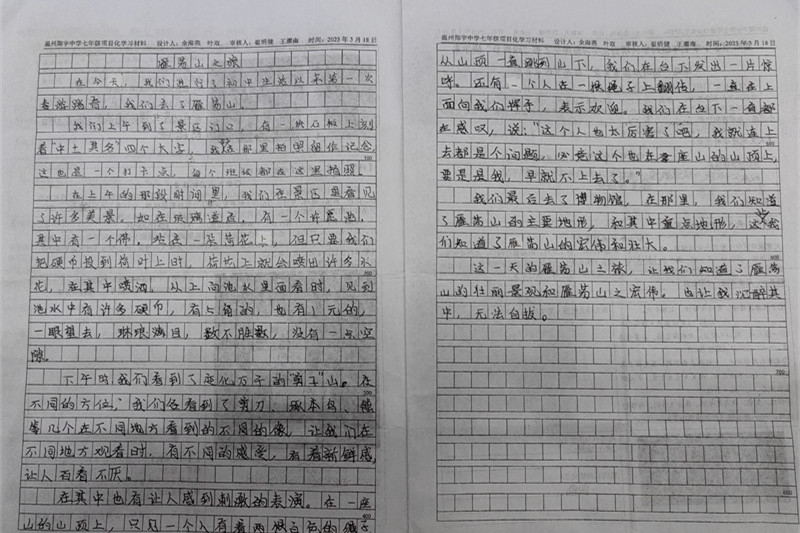 温州翔宇中学七年级项目化学习材料 设计人：余海燕 叶双 审核人：崔明健 王湘南 时间：2023年3月18日
雁荡山之旅
在今天，我们进行了初中生活以来第一次
春游踏青，我们去了雁荡山。
我们上午到了景区门口，有一块石板上刻
着"中土其多"四个大字，我在那里拍照留作纪念
这也是一个打卡点，每个班级都在这里拍照。
在上午的那段时间里，我们在景区里看见
了许多美景。如在玻璃道后，有一个许愿池，
其中有一个佛，站在一朵荷花上，但只要我们
把硬币投到荷叶上时，荷花上就会喷出许多水
花，在其中喷洒，从上向池水里面看时，见到
池水中有许多硬币，有5角的，也有1元的，
一眼望去，琳琅满目，数不胜数，没有一点空
隙。
下午时我们看到了变化万千的"剪子"山。在
不同的方位，我们各看到了剪刀、啄木鸟、
等几个在不同地方看到的不同的像，让我们在
不同地方观看时，有不同的感受，有着新鲜感，
让人百看不厌。
在其中也有让人感到刺激的表演。在一座
山的山顶上，只见一个人有着两根白色的绳子
100
200
300
400
温州翔宇中学七年级项目化学习材料 设计人：余海燕 叶双 审核人：崔明健 王湘南 时间：2023年3月18日
从山顶一直跳到山下，我们在台下发出一片惊
呼。还有一个人在一根绳子上翻转，一直在上
面向我们挥手，表示欢迎。我们在台下一直都
在感叹，说："这个人也太厉害了吧，我就连上
去都是个问题，必竟这个也在座山的山顶上，
要是是我，早就不上去了。"
我们最后去了博物馆，在那里，我们知道
了雁荡山的主要地形，和其中重点地形，这
们知道了雁荡山的宏伟和壮大。
这一天的雁荡山之旅，让我们知道了雁荡
山的壮丽景观和雁荡山之宏伟。也让我沉醉其
中，无法自拔。
500
600
700
800